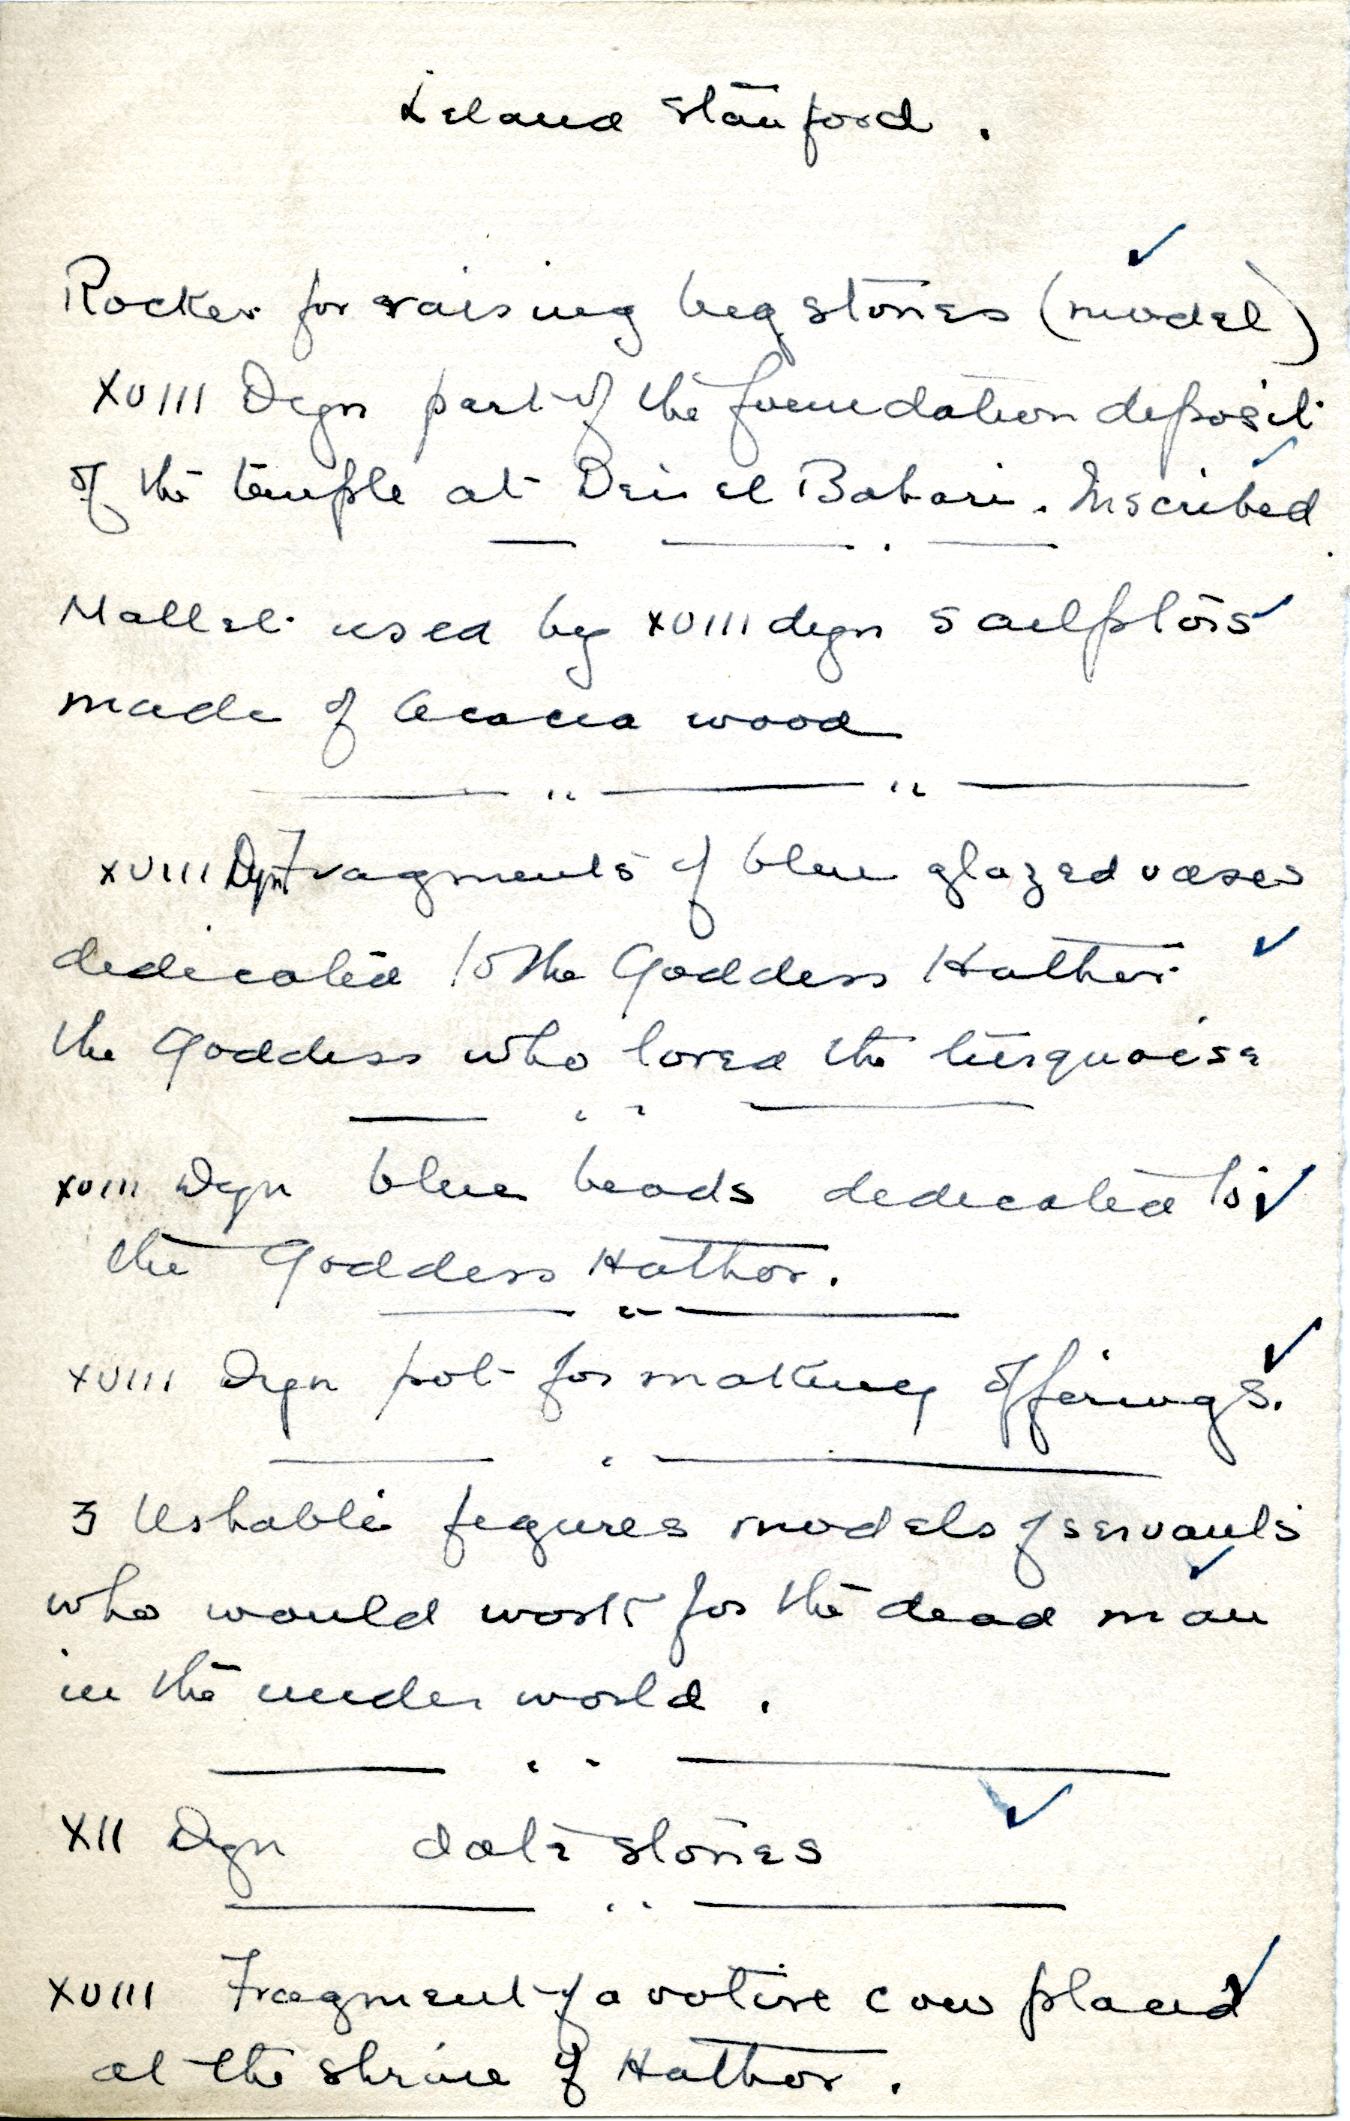 Leland Stanford.
Rocker for raising big stones (model)
XVIII Dyn part of the foundation deposit
of the temple at Deir el Bahari. Inscribed.
Mallet used by XVIII dyn sculptors
made of Acacia wood
XVIII Dyn Fragments of blue glazed vases
dedicated to the Goddess Hathor
the Goddess who loved the turquoise
XVIII Dyn blue beads dedicated to
the Goddess Hathor.
XVIII Dyn pot for making offerings.
3 Ushabti figures models of servants
who would work for the dead man
in the under world.
XII Dyn date stones
XVIII Fragment of a votive cow placed
at the shrine of Hathor.